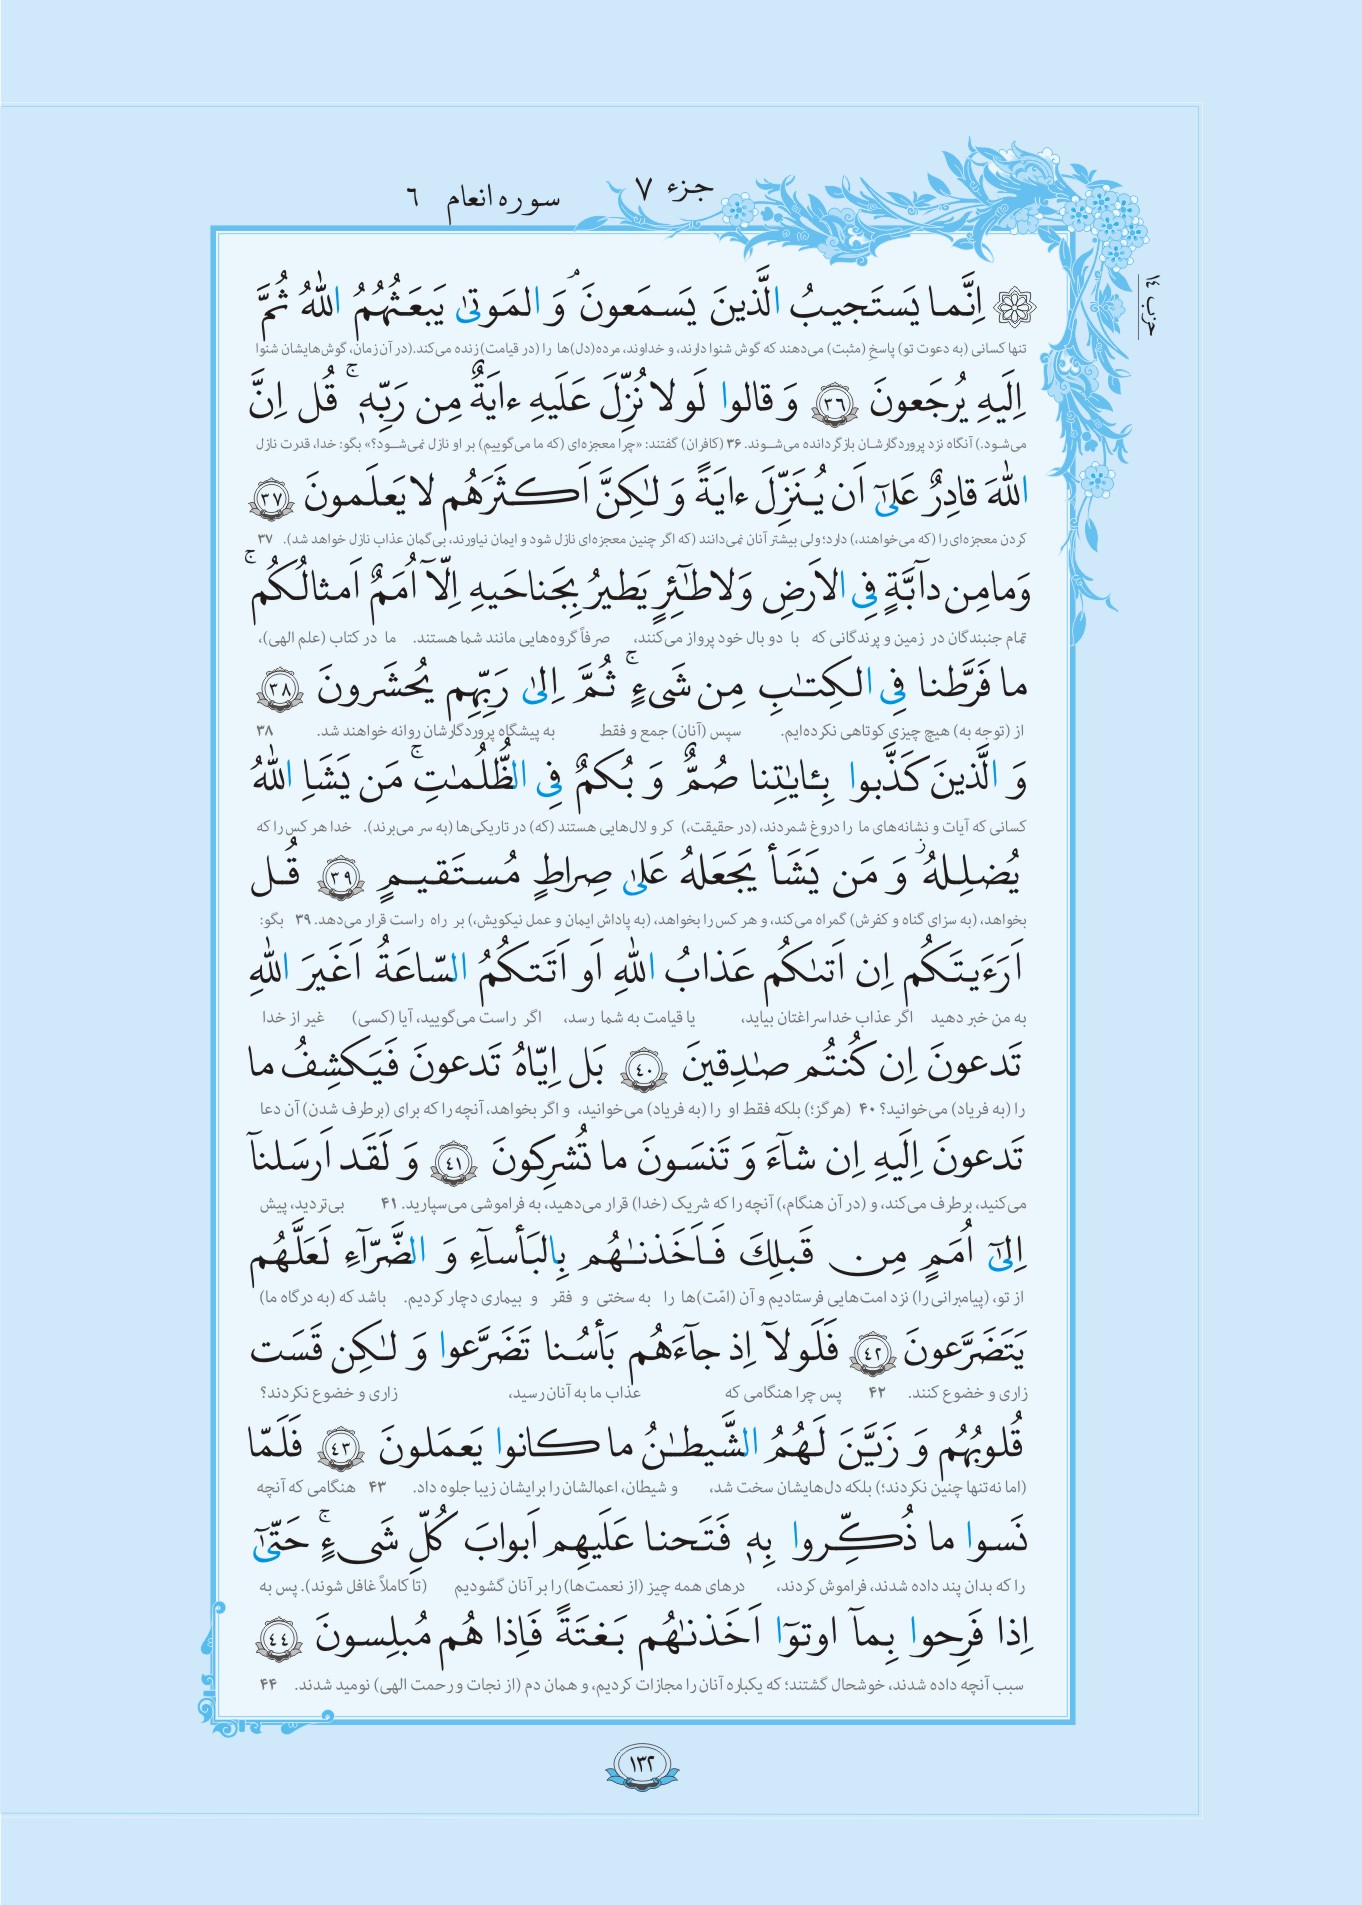 جزء ٧
سوره انعام ٦
حزب ١٤
اِنَّما يَستَجيبُ الَّذينَ يَسمَعونَ ۘ وَ المَوتىٰ يَبعَثُهُمُ اللهُ ثُمَّ
تنها کسانی (به دعوت تو) پاسخ (مثبت) می‌دهند که گوش شنوا دارند، و خداوند، مرده(دل)ها را (در قیامت) زنده می‌کند.(در آن زمان، گوش‌هایشان شنوا
اِلَيهِ يُرجَعونَ ٣٦ وَ قالوا لَولا نُزِّلَ عَلَيهِ ءايَةٌ مِن رَبِّهٖ ۚ قُل اِنَّ
می‌شود.) آنگاه نزد پروردگارشان بازگردانده می‌شوند. ۳۶ (کافران) گفتند: «چرا معجزه‌ای (که ما می‌گوییم) بر او نازل نمی‌شود؟» بگو: خدا، قدرت نازل
اللهَ قادِرٌ عَلىٰٓ اَن يُنَزِّلَ ءايَةً وَ لٰكِنَّ اَكثَرَهُم لا يَعلَمونَ ٣٧
کردن معجزه‌ای را (که می‌خواهند،) دارد؛ ولی بیشتر آنان نمی‌دانند (که اگر چنین معجزه‌ای نازل شود و ایمان نیاورند، بی‌گمان عذاب نازل خواهد شد). ۳۷
وَمامِن دآبَّةٍ فِى الاَرضِ وَلاطٰٓئِرٍ يَطيرُ بِجَناحَيهِ اِلّآ اُمَمٌ اَمثالُكُم ۚ
تمام جنبندگان در زمین و پرندگانی که با دو بال خود پرواز می‌کنند، صرفاً گروه‌هایی مانند شما هستند. ما در کتاب (علم الهی)،
ما فَرَّطنا فِى الكِتٰبِ مِن شَىءٍ ۚ ثُمَّ اِلىٰ رَبِّهِم يُحشَرونَ ٣٨
از (توجه به) هیچ چیزی کوتاهی نکرده‌ایم. سپس (آنان) جمع و فقط به پیشگاه پروردگارشان روانه خواهند شد. ۳۸
وَ الَّذينَ كَذَّبوا بِـٔايٰتِنا صُمٌّ وَ بُكمٌ فِى الظُّلُمٰتِ ۚ مَن يَشَاِ اللهُ
کسانی که آیات و نشانه‌های ما را دروغ شمردند، (در حقیقت،) کر و لال‌هایی هستند (که) در تاریکی‌ها (به سر می‌برند). خدا هر کس را که
يُضلِلهُ ز وَ مَن يَشَأ يَجعَلهُ عَلىٰ صِراطٍ مُستَقيمٍ ٣٩ قُل
بخواهد، (به سزای گناه و کفرش) گمراه می‌کند، و هر کس را بخواهد، (به پاداش ایمان و عمل نیکویش،) بر راه راست قرار می‌دهد. ۳۹ بگو:
اَرَءَيتَكُم اِن اَتىٰكُم عَذابُ اللهِ اَو اَتَتكُمُ السّاعَةُ اَغَيرَ اللهِ
به من خبر دهید اگر عذاب خدا سراغتان بیاید، یا قیامت به شما رسد، اگر راست می‌گویید، آیا (کسی) غیر از خدا
تَدعونَ اِن كُنتُم صٰدِقينَ ٤٠ بَل اِيّاهُ تَدعونَ فَيَكشِفُ ما
را (به فریاد) می‌خوانید؟ ۴۰ (هرگز؛) بلکه فقط او را (به فریاد) می‌خوانید، و اگر بخواهد، آنچه را که برای (برطرف شدن) آن دعا
تَدعونَ اِلَيهِ اِن شآءَ وَ تَنسَونَ ما تُشرِكونَ ٤١ وَ لَقَد اَرسَلنآ
می‌کنید، برطرف می‌کند، و (در آن هنگام،) آنچه را که شریک (خدا) قرار می‌دهید، به فراموشی می‌سپارید. ۴۱ بی‌تردید، پیش
اِلىٰٓ اُمَمٍ مِن قَبلِكَ فَاَخَذنٰهُم بِالبَأسآءِ وَ الضَّرّآءِ لَعَلَّهُم
از تو، (پیامبرانی را) نزد امت‌هایی فرستادیم و آن (امّت)ها را به سختی و فقر و بیماری دچار کردیم. باشد که (به درگاه ما)
يَتَضَرَّعونَ ٤٢ فَلَولآ اِذ جآءَهُم بَأسُنا تَضَرَّعوا وَ لٰكِن قَسَت
زاری و خضوع کنند. ۴۲ پس چرا هنگامی که عذاب ما به آنان رسید، زاری و خضوع نکردند؟
قُلوبُهُم وَ زَيَّنَ لَهُمُ الشَّيطٰنُ ما كانوا يَعمَلونَ ٤٣ فَلَمّا
(اما نه‌تنها چنین نکردند؛) بلکه دل‌هایشان سخت شد، و شیطان، اعمالشان را برایشان زیبا جلوه داد. ۴۳ هنگامی که آنچه
نَسوا ما ذُكِّروا بِهٖ فَتَحنا عَلَيهِم اَبوابَ كُلِّ شَىءٍ ۚ حَتّىٰٓ
را که بدان پند داده شدند، فراموش کردند، درهای همه چیز (از نعمت‌ها) را بر آنان گشودیم (تا کاملاً غافل شوند). پس به
اِذا فَرِحوا بِمآ اوتوٓا اَخَذنٰهُم بَغتَةً فَاِذا هُم مُبلِسونَ ٤٤
سبب آنچه داده شدند، خوشحال گشتند؛ که یکباره آنان را مجازات کردیم، و همان دم (از نجات و رحمت الهی) نومید شدند. ۴۴
۱۳۲